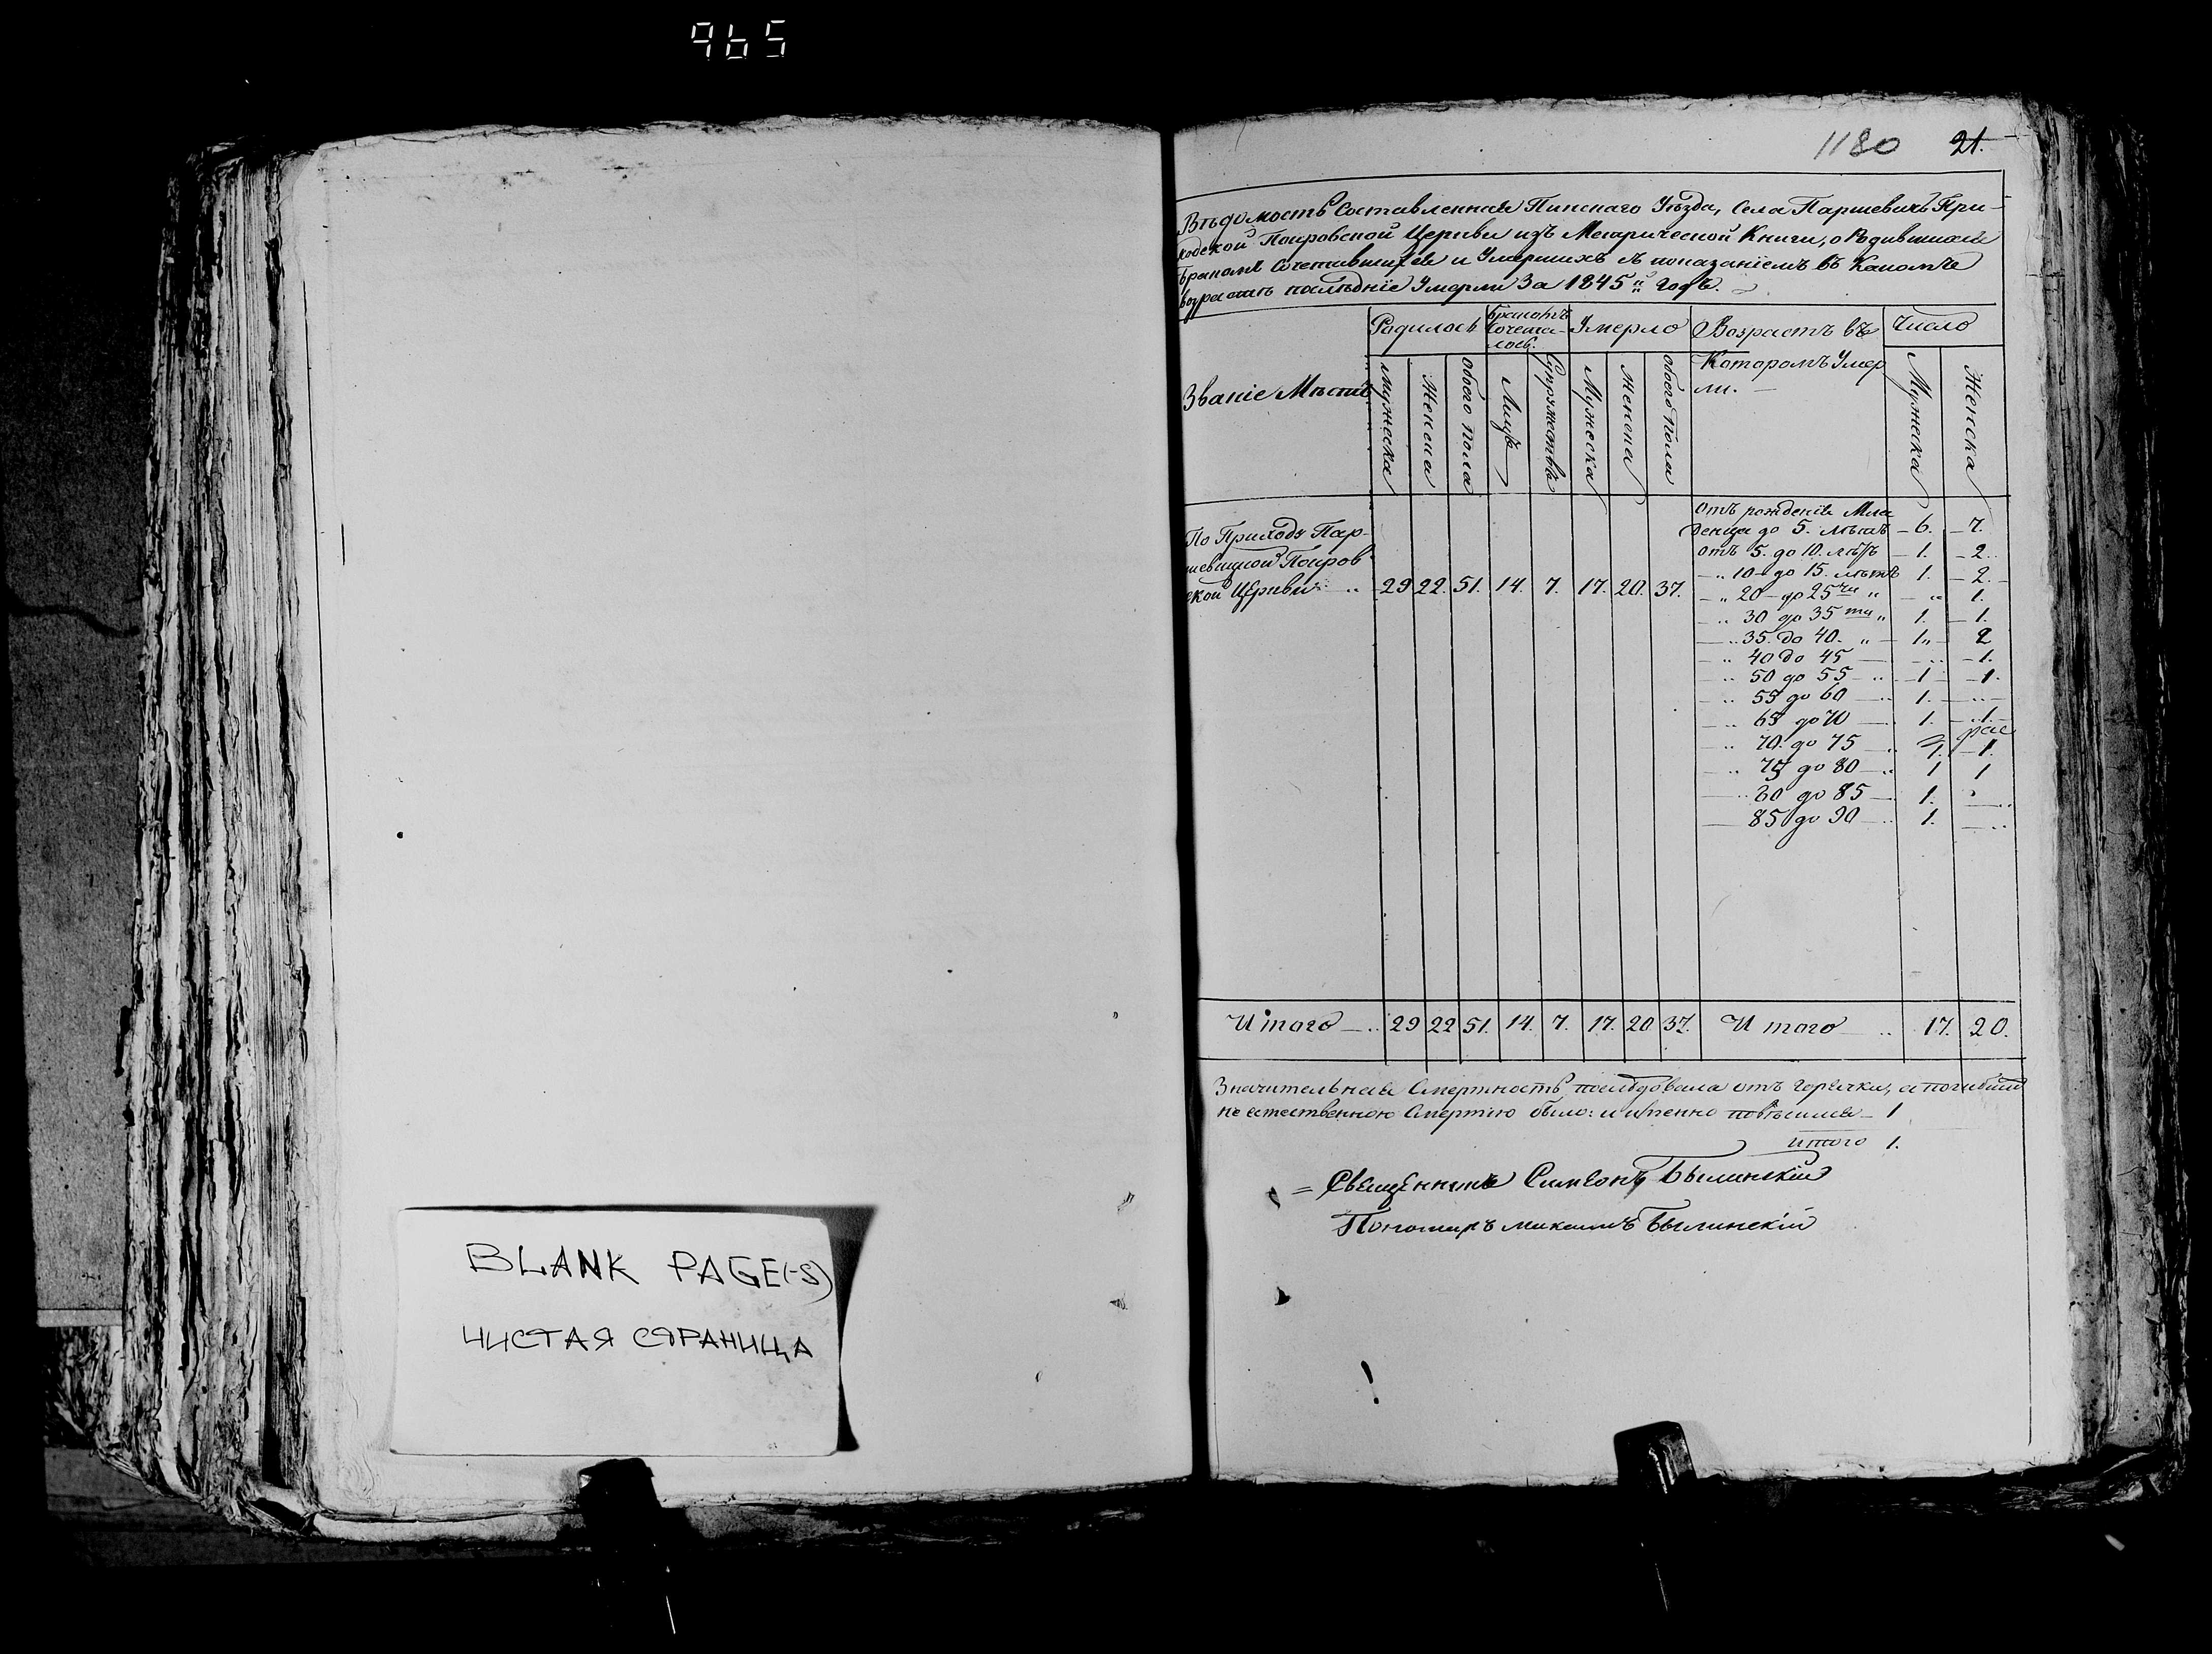 965
BLANK PAGE(-S)
ЧИСТАЯ СТРАНИЦА
1180 21.
Вѣдомость Составленная Пинскаго Уѣзда, Села Паршевичь При-
ходской Покровской Церкви изъ Метрической Книги, о Родившихся
Бракомъ Сочетавшихся и Умершихъ съ показаніемъ въ Какомъ
возрастѣ послѣдніе Умерли За 1845й годъ.
Званіе Мѣстъ
Родилось
Бракомъ Сочета-лось.
Умерло
Возрастъ въ Которомъ Умер ли. —
Число
Мужеска Женска Обоего пола Лицъ Супружствъ Мужеска Женска обоего Пола Мужеска Женска
По Приходу Пар-
шевицкой Покров
ской Церкви .. 29 22. 51. 14. 7. 17. 20. 37.
отъ рожденія Мла
денца до 5. лѣтъ — 6. — 7.
отъ 5. до 10. лѣтъ — 1. — 2.
— „ 10 — до 15. лѣтъ 1. — 2. —
— „ 20 — до 25ти „ — „ 1.
— „ 30 до 35ти „ 1. — 1.
— „ 35. до 40. „ — 1„ — 2
— „ 40 до 45 — — „ — 1.
— „ 50 до 55 — „ — 1 — — 1.
— „ 55 до 60 — „ 1. — „
— „ 65 до 70 — „ 1. — 1. —
— „ 70. до 75 — „ 1. — 1.
— „ 75 до 80 — „ 1 1
— „ 80 до 85 — 1. — „
— 85 до 90 — „ 1. — „
Итого — .. 29 22 51. 14. 7. 17. 20 37. Итого .. 17. 20.
Значительная Смертность последовала отъ горячки, а погибшій
не естественною Смертію было: и именно повѣсился — 1
итого 1.
= Священникъ Симеонъ Былинскій
Пономарь Максимъ Былинскій